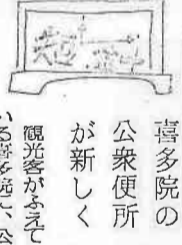 喜多院の
公衆便所
が新しく
観光客がふえて
いる喜多院に、公